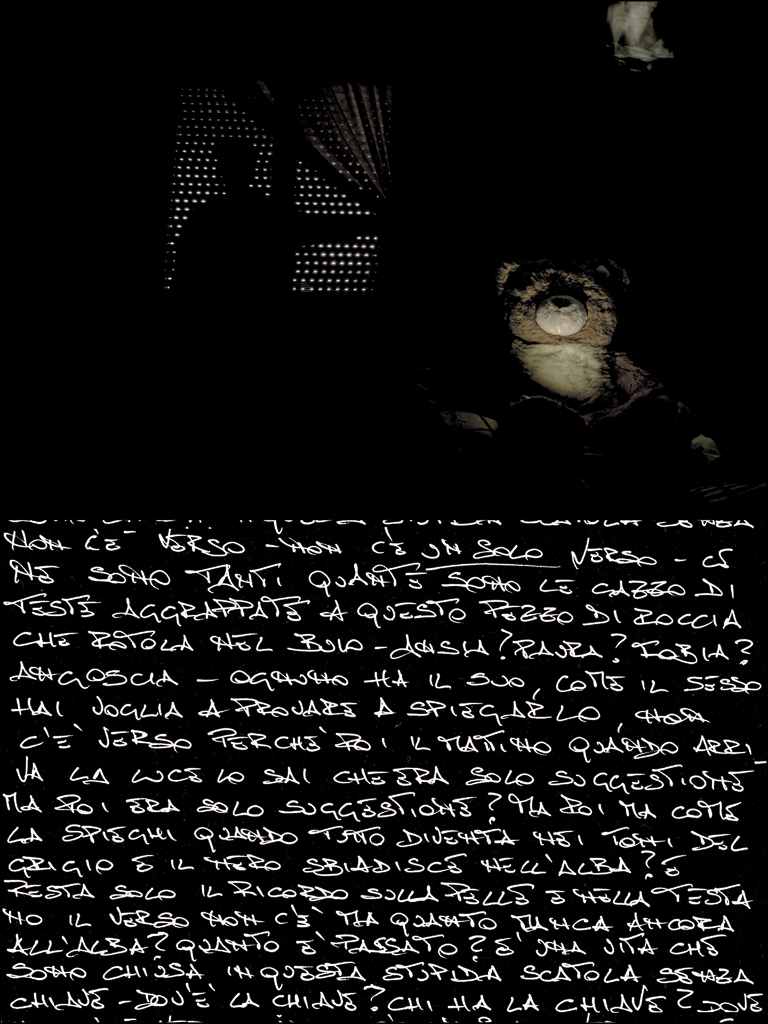 NON C'È VERSO - NON C'È UN SOLO VERSO - CE
NE SONO TANTI QUANTE SONO LE CAZZO DI
TESTE AGGRAPPATE A QUESTO PEZZO DI ROCCIA
CHE ROTOLA NEL BUIO - ANSIA? PAURA? FOBIA?
ANGOSCIA - OGNUNO HA IL SUO, COME IL SESSO
HAI VOGLIA A PROVARE A SPIEGARLO, NON
C'E' VERSO PERCHE' POI IL MATTINO QUANDO ARRI-
VA LA LUCE LO SAI CHE ERA SOLO SUGGESTIONE
MA POI ERA SOLO SUGGESTIONE? MA POI MA COME
LA SPIEGHI QUANDO TUTTO DIVENTA NEI TONI DEL
GRIGIO E IL NERO SBIADISCE NELL'ALBA? E
RESTA SOLO IL RICORDO SULLA PELLE E NELLA TESTA
NO IL VERSO NON C'E' MA QUANTO MANCA ANCORA
ALL'ALBA? QUANTO E' PASSATO? E' UNA VITA CHE
SONO CHIUSA IN QUESTA STUPIDA SCATOLA SENZA
CHIAVE - DOV'E' LA CHIAVE? CHI HA LA CHIAVE? DOVE